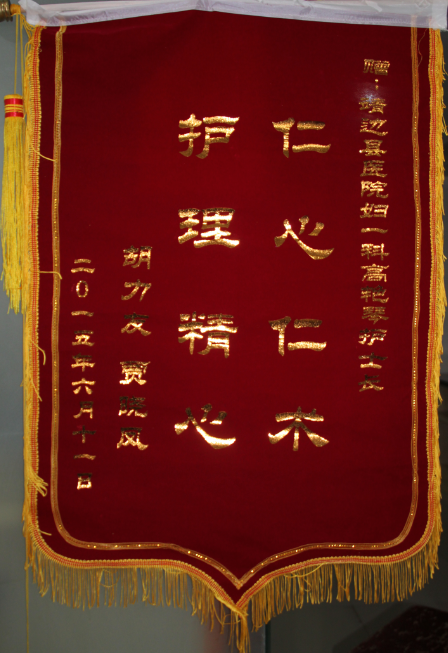 赠：靖边县医院妇一科高艳琴护士长
仁心仁术
护理精心
胡力友 贾院凤
二0一五年六月十一日